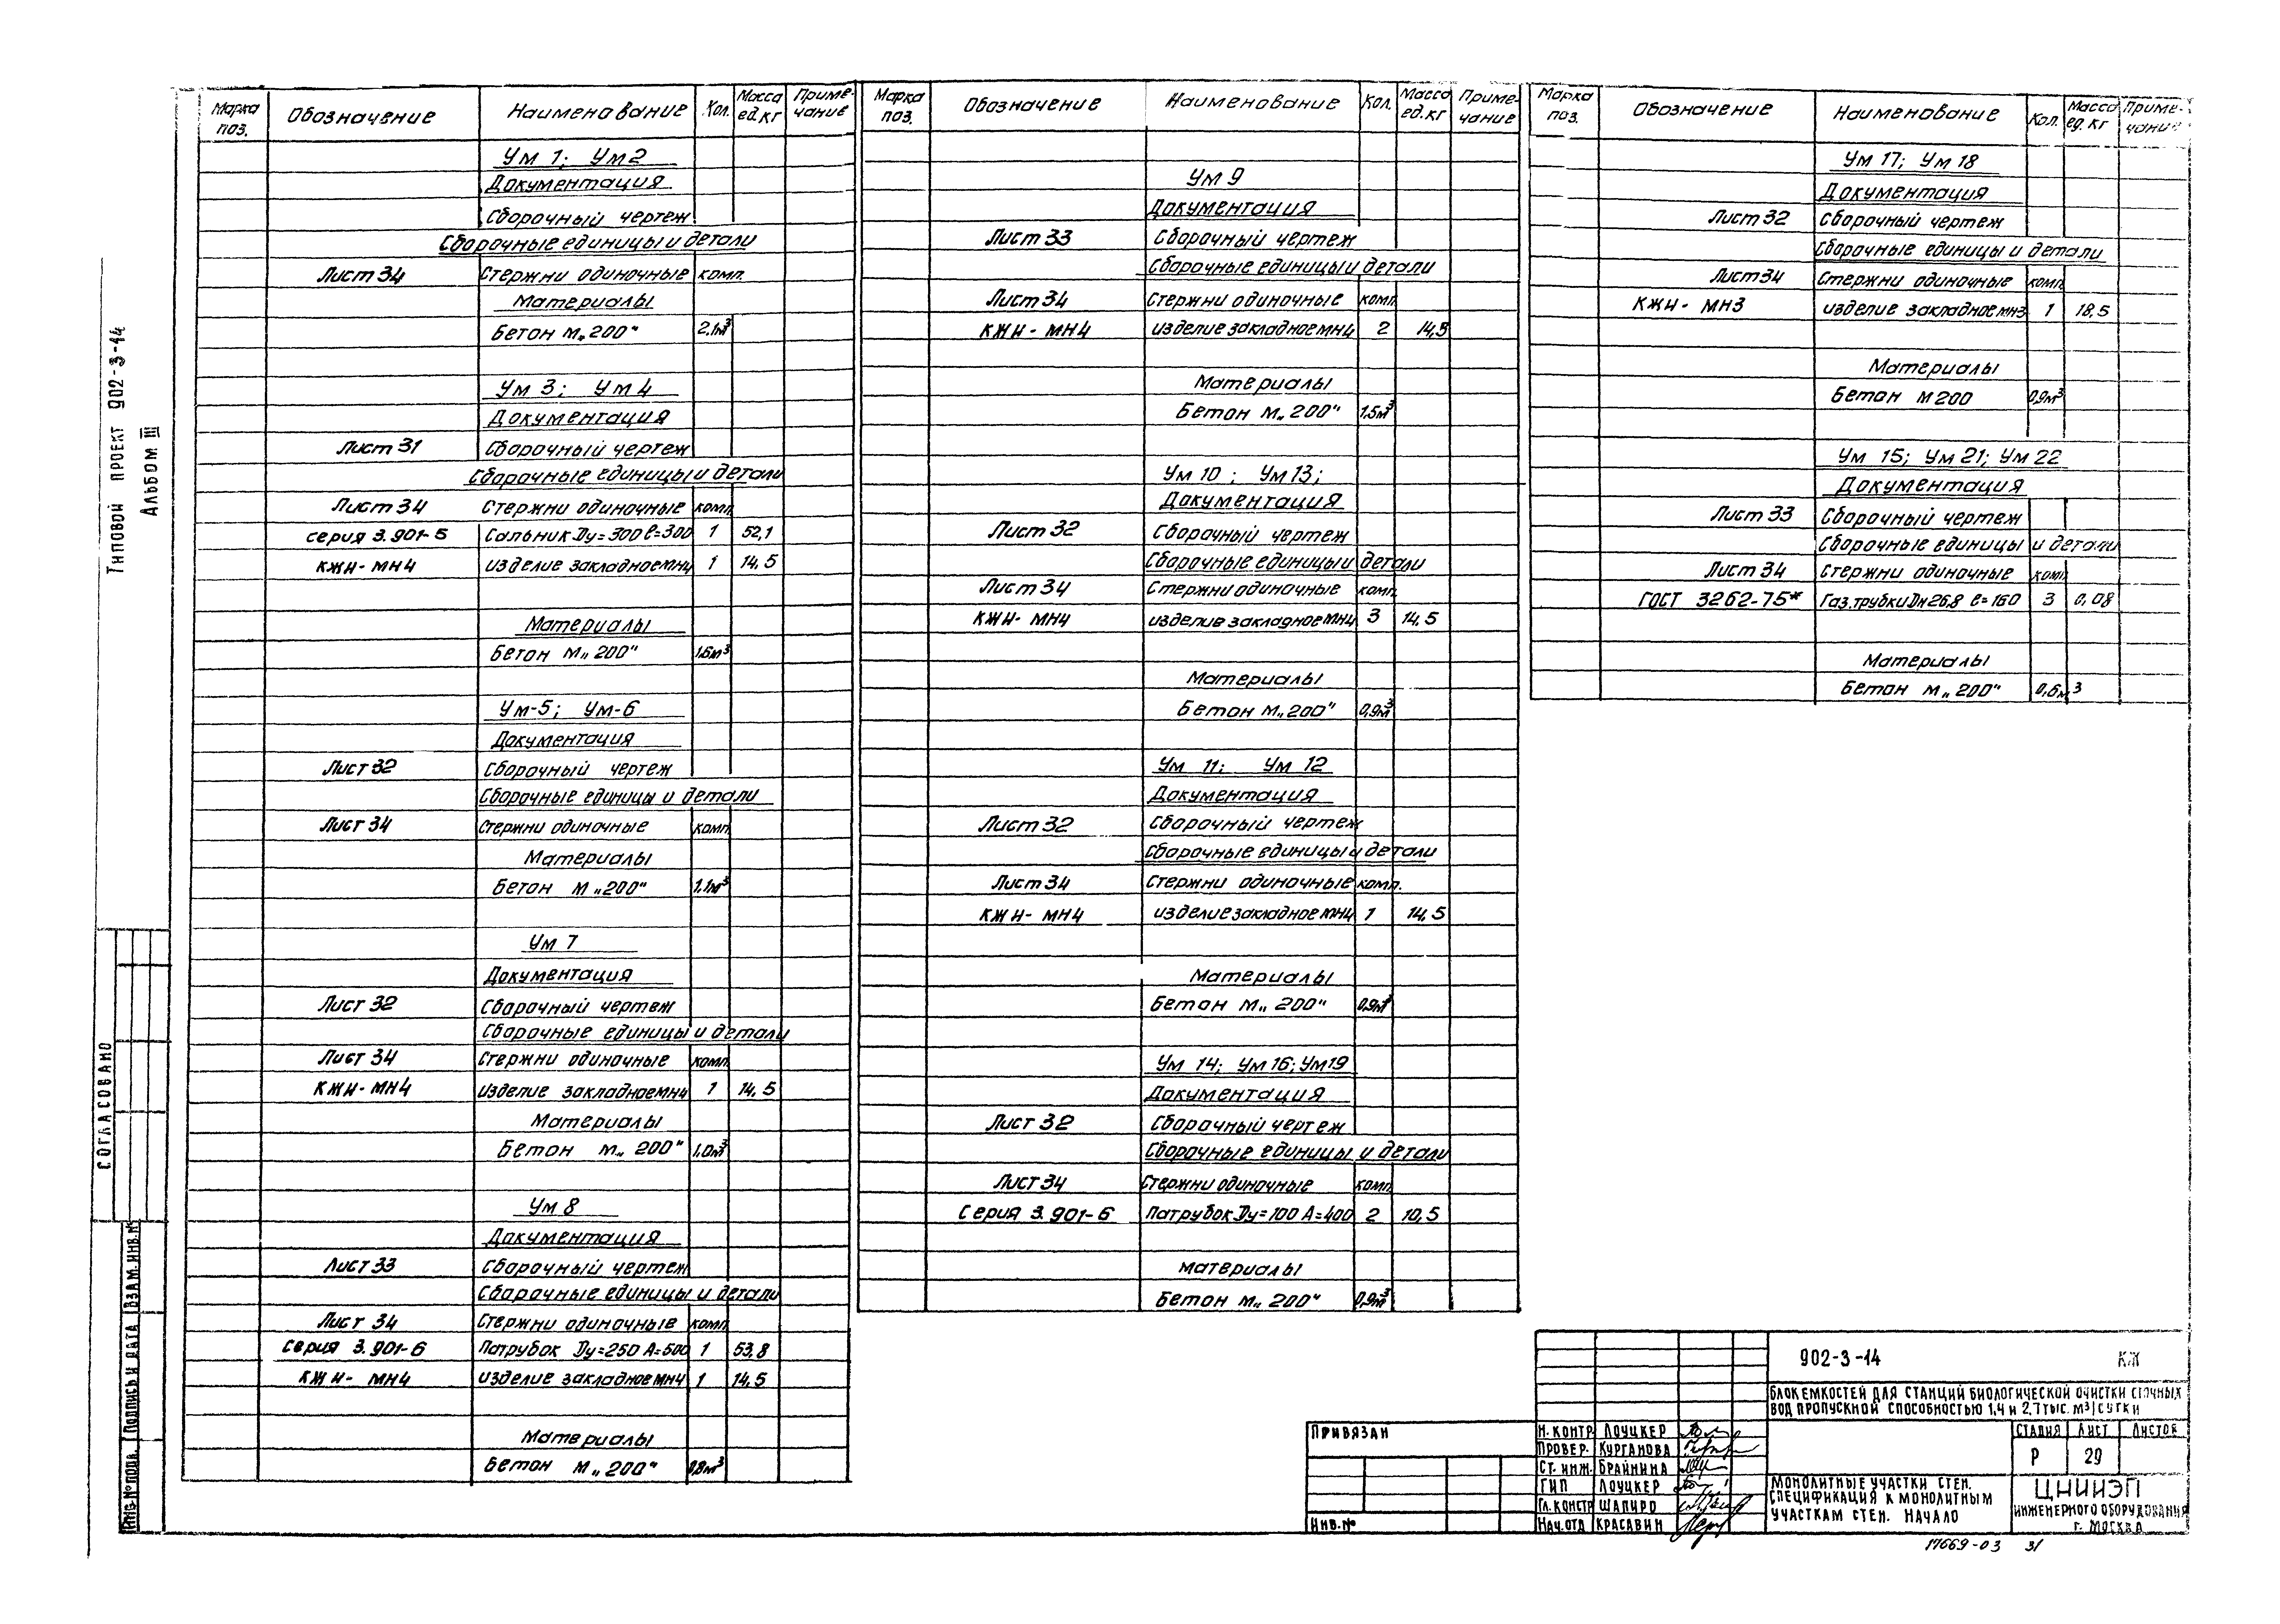 Типовой проект 902-3-14
Альбом III
Согласовано
Взам. инв. №
Подпись и дата
Инв. № подл.
Марка поз. Обозначение Наименование Кол. Масса ед. кг Примечание
Ум 1; Ум 2
Документация
Сборочный чертеж
Сборочные единицы и детали
Лист 34 Стержни одиночные комп.
Материалы
Бетон М„200" 2.1м³
Ум 3; Ум 4
Документация
Лист 31 Сборочный чертеж
Сборочные единицы и детали
Лист 34 Стержни одиночные комп.
серия 3.901-5 Сальник Ду=300 ℓ=300 1 52,1
КЖИ-МН4 изделие закладное МН4 1 14,5
Материалы
Бетон М„200" 1.6м³
Ум-5; Ум-6
Документация
Лист 32 Сборочный чертеж
Сборочные единицы и детали
Лист 34 Стержни одиночные комп.
Материалы
Бетон М„200" 1.1м³
Ум 7
Документация
Лист 32 Сборочный чертеж
Сборочные единицы и детали
Лист 34 Стержни одиночные комп.
КЖИ-МН4 изделие закладное МН4 1 14,5
Материалы
Бетон М„200" 1,0м³
Ум 8
Документация
Лист 33 Сборочный чертеж
Сборочные единицы и детали
Лист 34 Стержни одиночные комп.
серия 3.901-6 Патрубок Ду=250 А=500 1 53,8
КЖИ-МН4 изделие закладное МН4 1 14,5
Материалы
Бетон М„200" 0,8м³
Марка поз. Обозначение Наименование Кол. Масса ед. кг Примечание
Ум 9
Документация
Лист 33 Сборочный чертеж
Сборочные единицы и детали
Лист 34 Стержни одиночные комп.
КЖИ-МН4 изделие закладное МН4 2 14,5
Материалы
Бетон М„200" 1.5м³
Ум 10; Ум 13;
Документация
Лист 32 Сборочный чертеж
Сборочные единицы и детали
Лист 34 Стержни одиночные комп.
КЖИ-МН4 изделие закладное МН4 3 14,5
Материалы
Бетон М„200" 0,9м³
Ум 11; Ум 12
Документация
Лист 32 Сборочный чертеж
Сборочные единицы и детали
Лист 34 Стержни одиночные комп.
КЖИ-МН4 изделие закладное МН4 1 14,5
Материалы
Бетон М„200" 0,9м³
Ум 14; Ум 16; Ум 19
Документация
Лист 32 Сборочный чертеж
Сборочные единицы и детали
Лист 34 Стержни одиночные комп.
Серия 3.901-6 Патрубок Ду=100 А=400 2 10,5
материалы
Бетон М„200" 0,9м³
Марка поз. Обозначение Наименование Кол. Масса ед. кг Примечание
Ум 17; Ум 18
Документация
Лист 32 Сборочный чертеж
Сборочные единицы и детали
Лист 34 Стержни одиночные комп.
КЖИ-МН3 изделие закладное МН3 1 18,5
Материалы
Бетон М200 0,9м³
Ум 15; Ум 21; Ум 22
Документация
Лист 33 Сборочный чертеж
Сборочные единицы и детали
Лист 34 Стержни одиночные комп.
ГОСТ 3262-75* Газ. трубки Дн 26,8 ℓ=160 3 0,08
Материалы
Бетон М„200" 0,6м³
Привязан
Инв. №
Н. контр Лоуцкер
Провер. Курганова
Ст. инж. Брайнина
ГИП Лоуцкер
Гл. констр Шапиро
Нач. отд Красавин
902-3-14 КЖ
Блок емкостей для станций биологической очистки сточных
вод пропускной способностью 1,4 и 2,7 тыс. м³/сутки
Стадия Лист Листов
Р 29
Монолитные участки стен.
Спецификация к монолитным
участкам стен. Начало
ЦНИИЭП
инженерного оборудования
г. Москва
17669-03 31